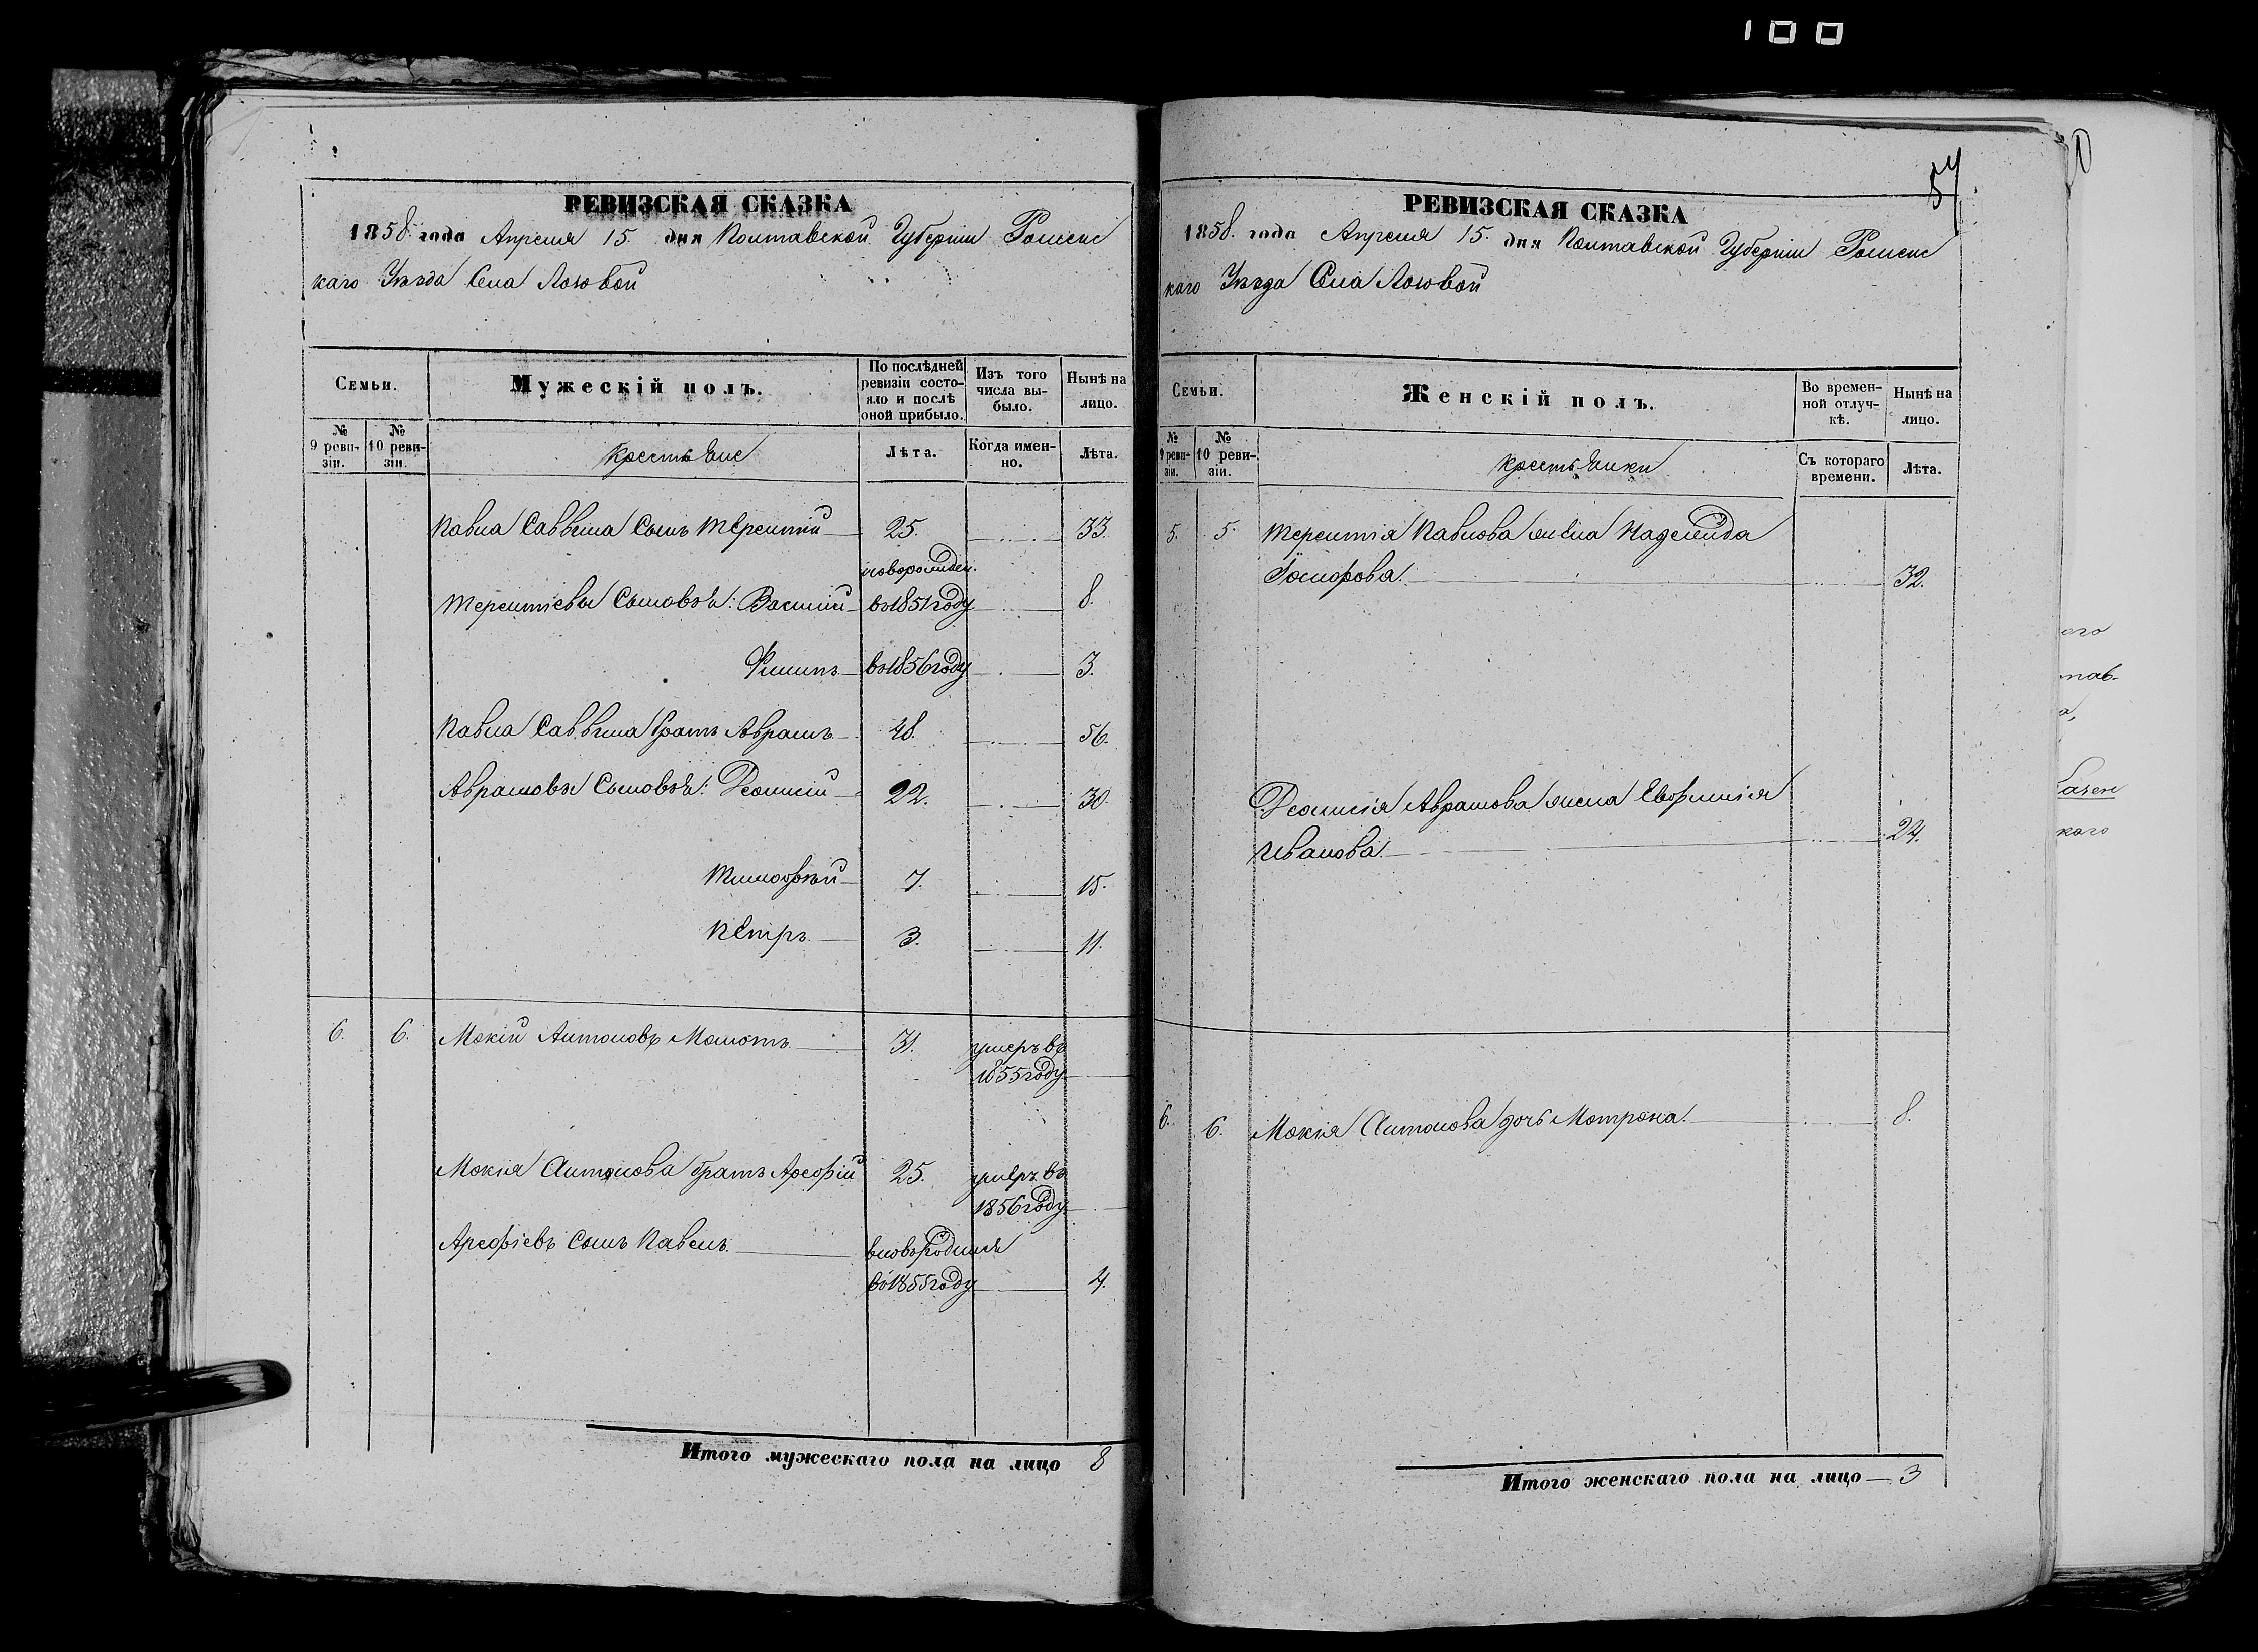 100
РЕВИЗСКАЯ СКАЗКА
1858. года Апреля 15. дня Полтавской Губерніи Роменс
каго Уѣзда Села Лозовой
Семьи.
Мужескій полъ.
По послѣдней ревизіи состояло и послѣ оной прибыло.
Изъ того числа выбыло.
Нынѣ на лицо.
№ 9 ревизіи.
№ 10 ревизіи.
крестьяне
Лѣта.
Когда именно.
Лѣта.
Павла Саввина Сынъ Терентій 25. 33.
новорожден.
Терентіевы Сыновья: Василій въ 1851 году 8.
Филипъ въ 1856 году 3.
Павла Саввина братъ Аврамъ 48. 56.
Аврамовы Сыновья: Леонтій 22. 30.
Тимофѣй 7. 15.
Петръ 3. 11.
6. 6. Мокій Антоновъ 31. умеръ въ
1855 году
Мокія Антонова братъ Арефій 25. умеръ въ
1856 году
Арефіевъ Сынъ Павелъ вновьродился
въ 1855 году 4.
Итого мужескаго пола на лицо 8
57
РЕВИЗСКАЯ СКАЗКА
1858. года Апреля 15. дня Полтавской Губерніи Роменс
каго Уѣзда Села Лозовой
Семьи.
Женскій полъ.
Во временной отлучкѣ.
Нынѣ на лицо.
№ 9 ревизіи.
№ 10 ревизіи.
крестьянки
Съ котораго времени.
Лѣта.
5. 5. Терентія Павлова жена
32.
Аврамова жена Евфимія
Иванова 24.
6. 6. Мокія Антонова дочь Мотрона 8.
Итого женскаго пола на лицо 3